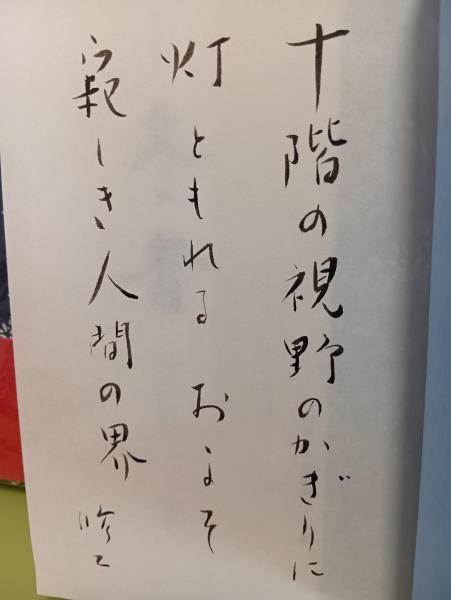 十階の視野のかぎりに
灯ともれる およそ
寂しき人間の界